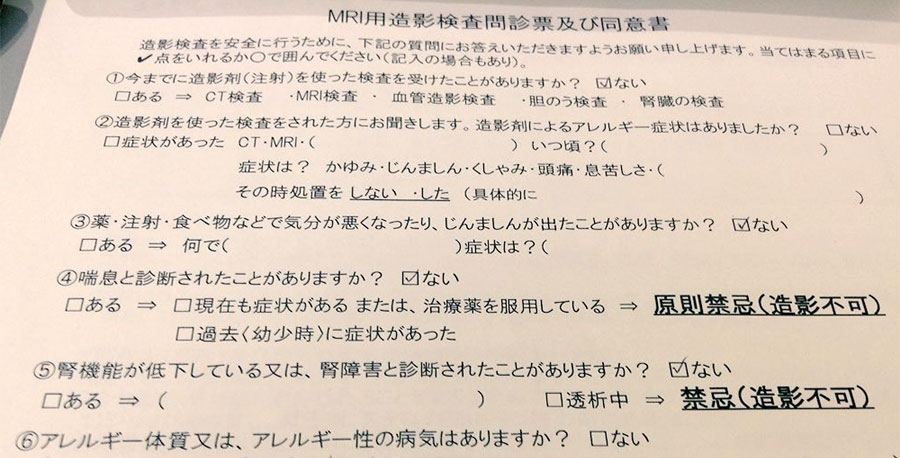 MRI用造影検査問診票及び同意書
造影検査を安全に行うために、下記の質問にお答えいただきますようお願い申し上げます。当てはまる項目に
✔点をいれるか〇で囲んでください(記入の場合もあり)。
①今までに造影剤(注射)を使った検査を受けたことがありますか? ☑ない
□ある ⇒ CT検査 ・MRI検査 ・ 血管造影検査 ・胆のう検査 ・ 腎臓の検査
②造影剤を使った検査をされた方にお聞きします。造影剤によるアレルギー症状はありましたか? □ない
□症状があった CT・MRI・( ) いつ頃?( )
症状は? かゆみ・じんましん・くしゃみ・頭痛・息苦しさ・(
その時処置を しない ・した (具体的に )
③薬・注射・食べ物などで気分が悪くなったり、じんましんが出たことがありますか? ☑ない
□ある ⇒ 何で( )症状は?(
④喘息と診断されたことがありますか? ☑ない
□ある ⇒ □現在も症状がある または、治療薬を服用している ⇒ 原則禁忌(造影不可)
□過去〈幼少時〉に症状があった
⑤腎機能が低下している又は、腎障害と診断されたことがありますか? ☑ない
□ある ⇒ ( ) □透析中 ⇒ 禁忌(造影不可)
⑥アレルギー体質又は、アレルギー性の病気はありますか? □ない